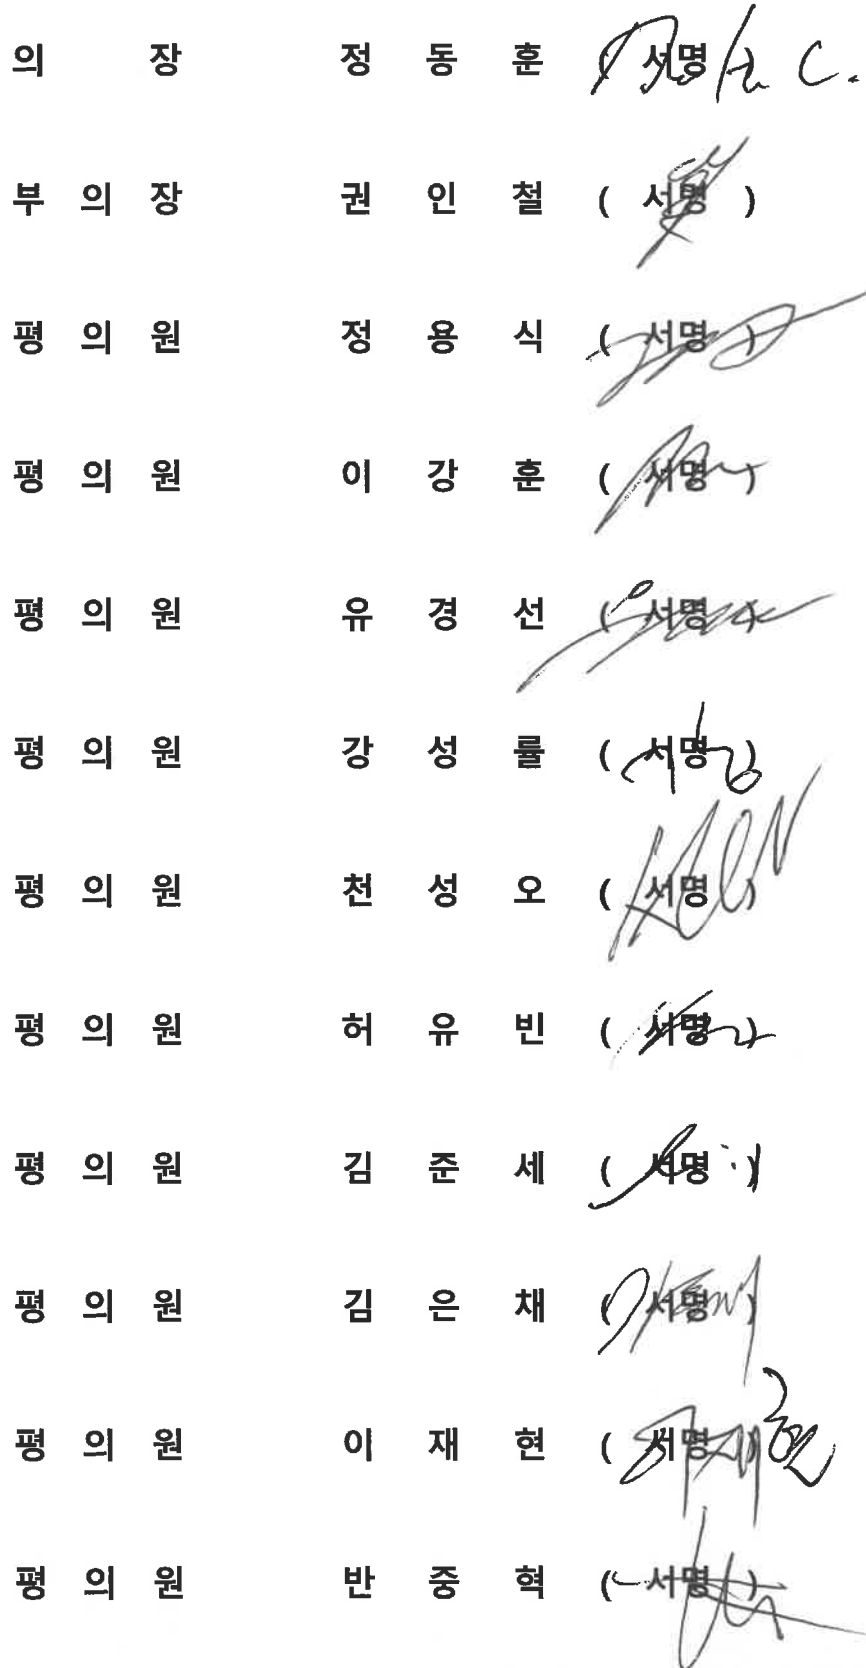 의 장 정 동 훈 ( 서명 )
부 의 장 권 인 철 ( 서명 )
평 의 원 정 용 식 ( 서명 )
평 의 원 이 강 훈 ( 서명 )
평 의 원 유 경 선 ( 서명 )
평 의 원 강 성 률 ( 서명 )
평 의 원 천 성 오 ( 서명 )
평 의 원 허 유 빈 ( 서명 )
평 의 원 김 준 세 ( 서명 )
평 의 원 김 은 채 ( 서명 )
평 의 원 이 재 현 ( 서명 )
평 의 원 반 중 혁 ( 서명 )